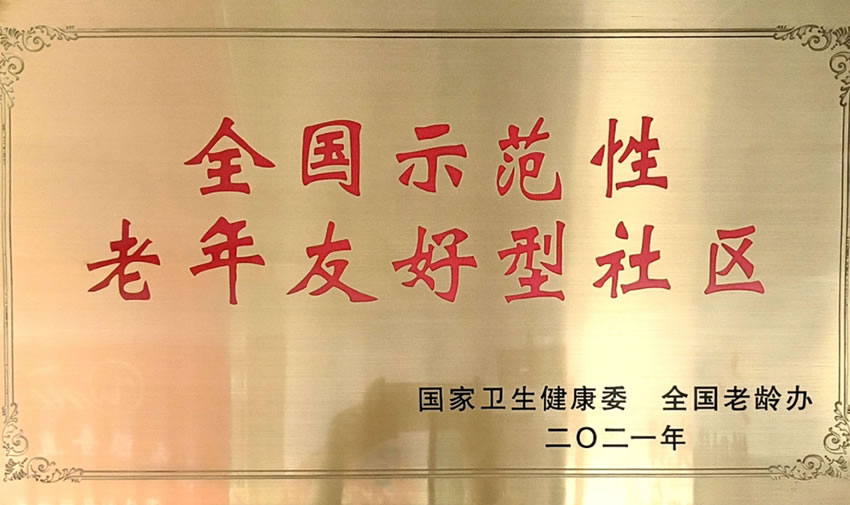 全国示范性
老年友好型社区
国家卫生健康委 全国老龄办
二〇二一年